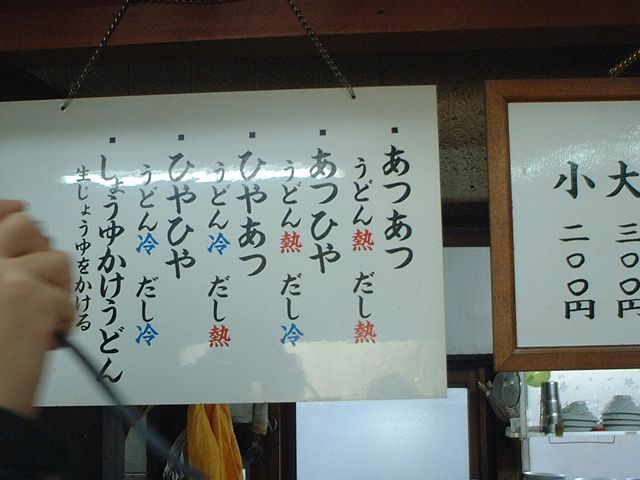 大 三〇〇円
小 二〇〇円
▪あつあつ
うどん熱 だし熱
▪あつひや
うどん熱 だし冷
▪ひやあつ
うどん冷 だし熱
▪ひやひや
うどん冷 だし冷
▪しょうゆかけうどん
生じょうゆをかける